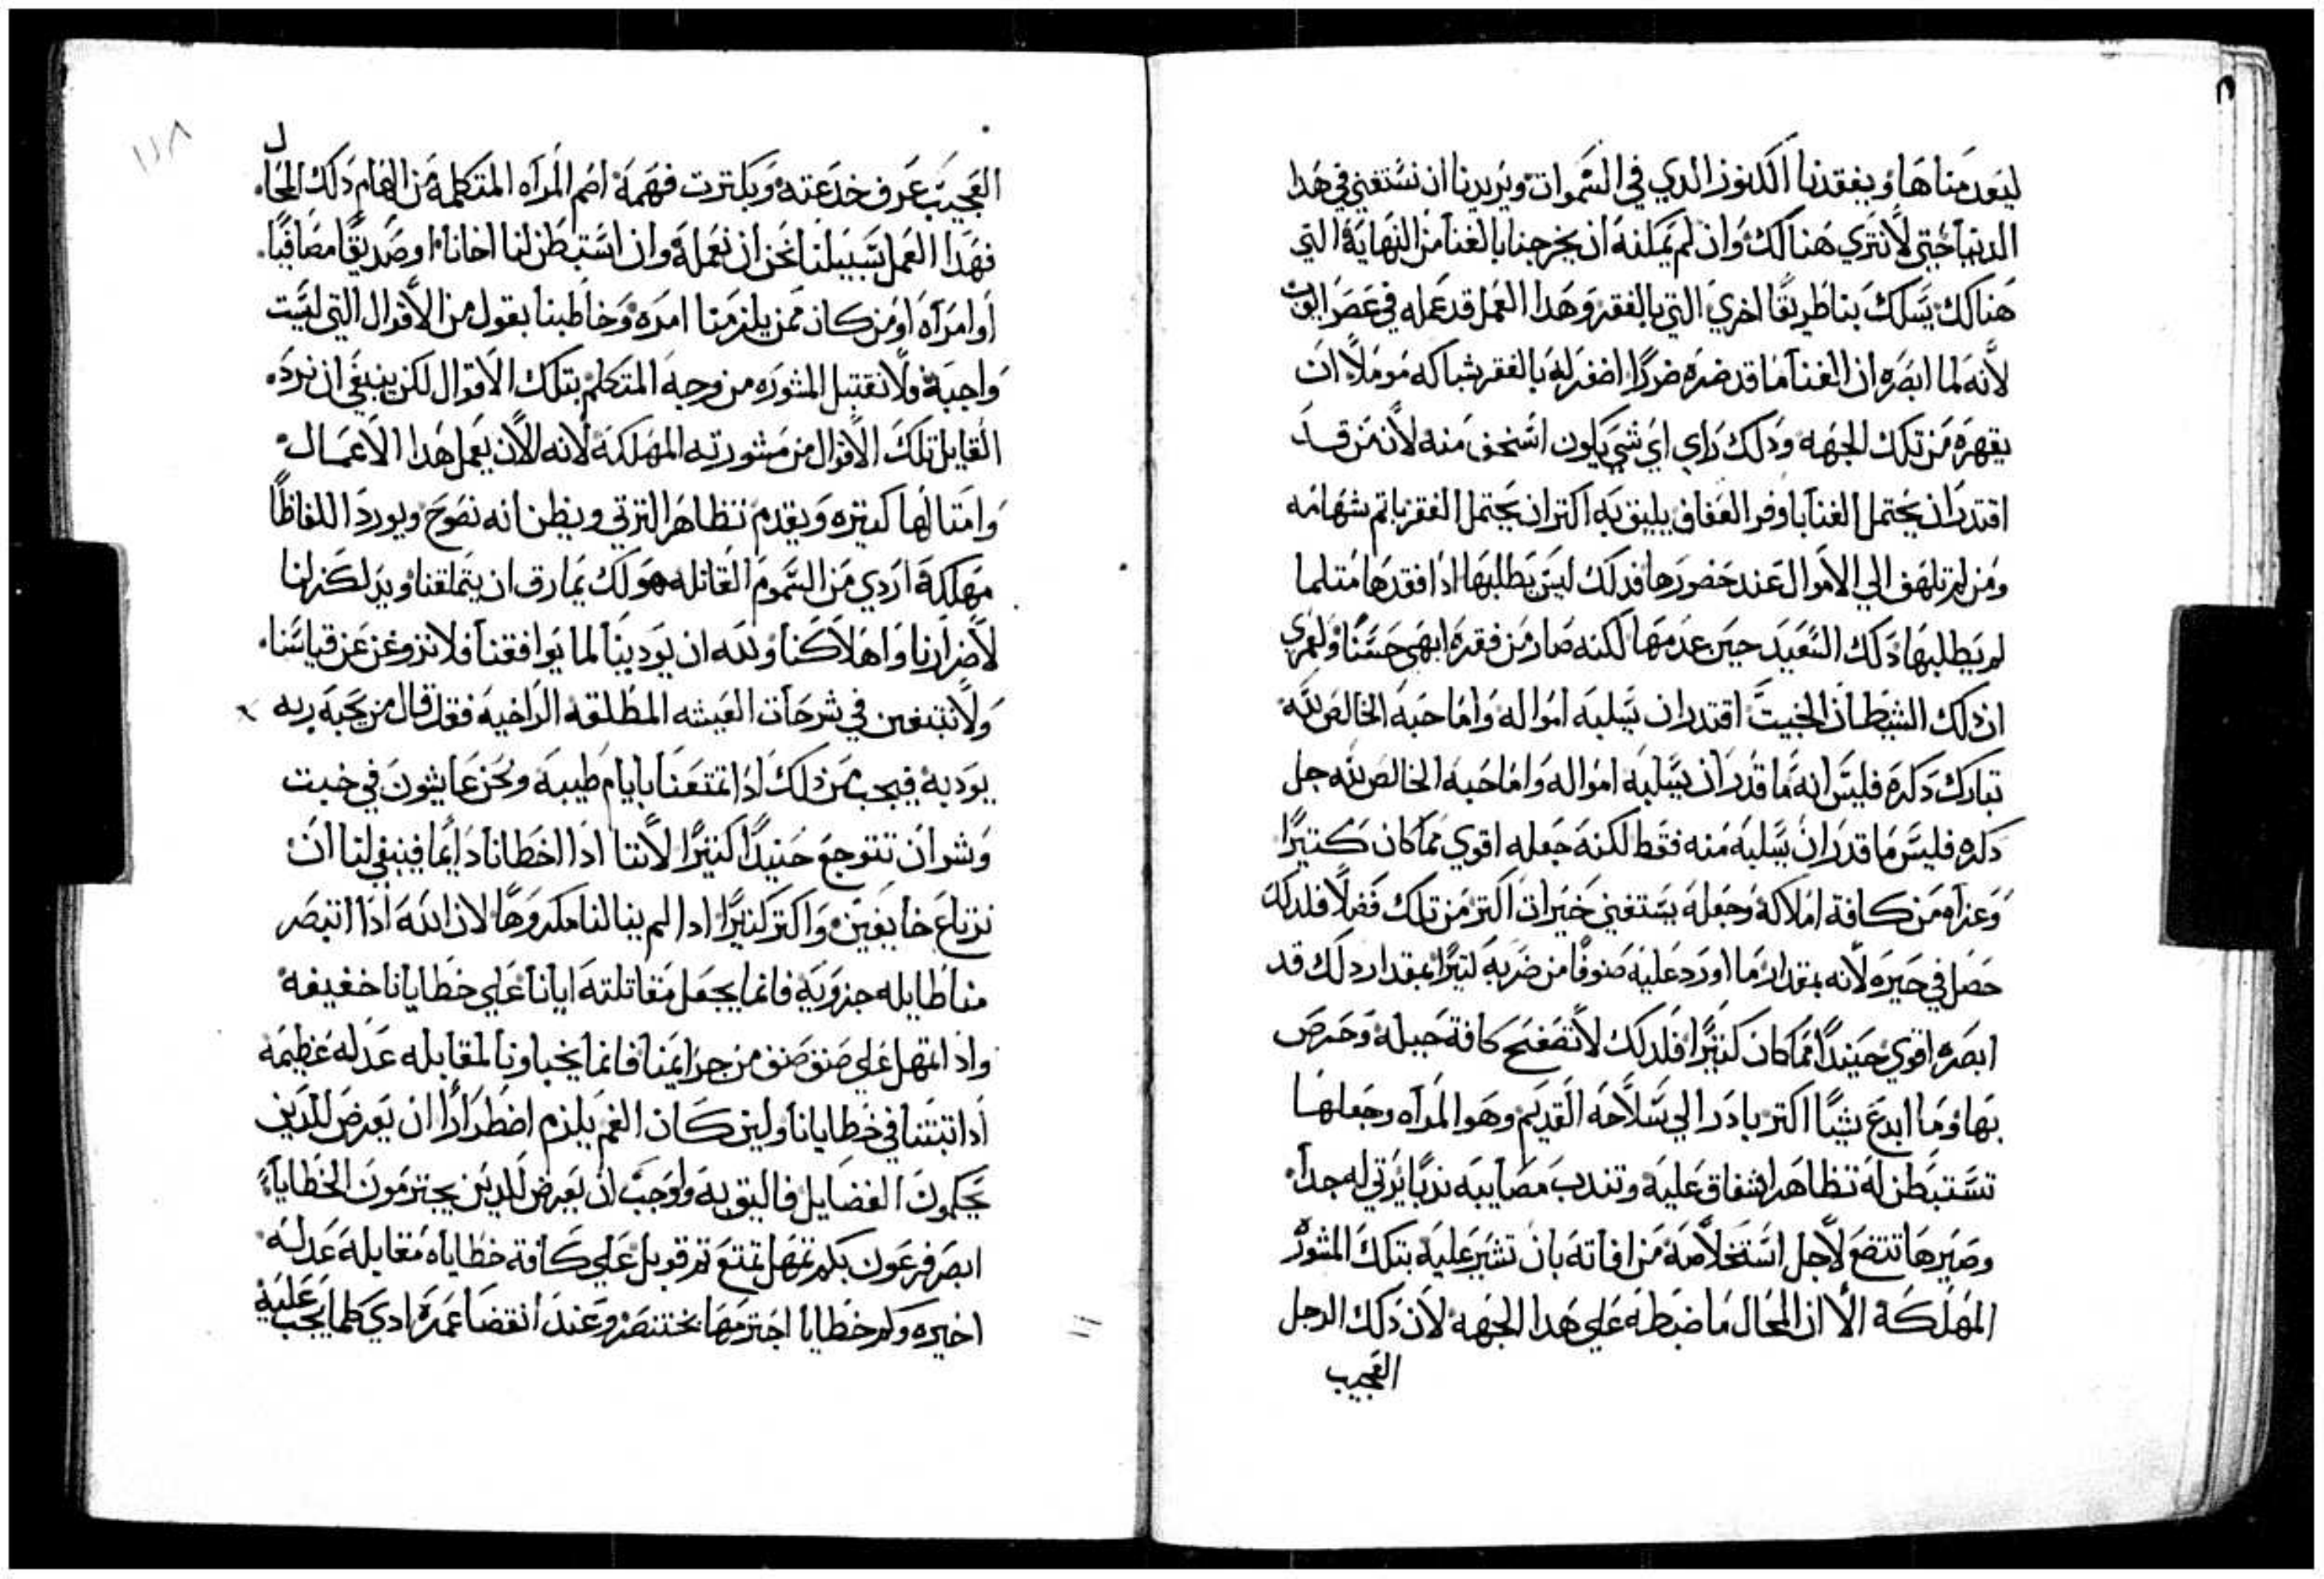 ليعدمناها ويفقدنا الكنوز الدي في السموات ويريدنا ان نستغني في هدا
الدنيا حتي لا نتري هنالك وان لم يمكنه ان يخرجنا بالغنا من النهاية التي
هنالك يسلك بنا طريقًا اخري التي بالفقر وهدا العمل قد عمله في عصر ايوب
لانه لما ابصره ان الغنا ما قد ضره ضررًا اضفر له بالفقر شباكه موملًا ان
يقهره من تلك الجهه ودلك راي اي شي يكون اسخف منه لانه من قد
اقتدر ان يحتمل الغنا باوفر العفاف يليق به اكتر ان يحتمل الفقر باتم شهامه
ومن لم تلهف الي الاموال عند حضورها فدلك ليس يطلبها ادا فقدها متلما
لم يطلبها دلك السعيد حين عدمها لكنه صار من فقره ابهي حسنًا ولعمري
ان دلك الشيطان الخبيت اقتدر ان يسلبه امواله واما حبه الخالص لله
تبارك دكره فليس انه ما قدر ان يسلبه امواله واما حبه الخالص لله جل
دكره فليس ما قدر ان يسلبه منه فقط لكنه جعله اقوي مما كان كتيرًا
وعراه من كافة املاكه وجعله يستغني خيرات اكتر من تلك فضلًا فلدلك
حصل في حيره لانه بمقدار ما اورد عليه صنوفًا من ضربه كتيرًا بمقدار دلك قد
ابصره اقوي حينيدًا مما كان كتيرًا فلدلك لا تصفح كافة حيله وحرص
بها وما ابدع شيًا اكتر بادر الي سلاحه القديم وهو المراه وجعلها
تستبطن له تظاهر اشفاق عليه وتندب مصايبه ندبًا يرتي له جدًا
وصيرها تتضع لاجل استخلاصه من افاته بان تشير عليه بتلك المشور
المهلكة الا ان المحال ما ضبطه علي هدا الجهه لان دلك الرجل
العجيب
١١٨
العجيب عرف خدعته وبكترت فهمه اصم المراه المتكلمة من الهام دلك المحال
فهدا العمل سبيلنا نحن ان نعمله وان استبطن لنا اخانا او صديقًا مصافيًا
او امراه او من كان ممن يلزمنا امره وخاطبنا بقول من الاقوال التي ليست
واجبة ولا نقتبل المشوره من وجه المتكلم بتلك الاقوال لكن ينبغي ان نرد
القايل تلك الاقوال من مشورته المهلكة لانه الان يعمل هدا الاعمال
وامتالها كتيره ويقدم تظاهر الترتي ويظن انه نصوح ويورد اللفاظًا
مهلكة اردي من السموم القاتله هو لك يمارق ان يتملقنا ويدلك لنا
لاضرارنا واهلاكنا ولله ان يودبنا لما يوافقنا فلا نزوغن عن قياسنا
ولا نبتغين في شرحات العيشه المطلقه الراخيه فقد قال من يحبه ربه
يودبه فيجب من دلك ادا تمتعنا بايام طيبه ونحن عايشون في خبت
وشر ان نتوجع حنيدًا كتيرًا لاننا ادا اخطانا دايمًا فينبغي لنا ان
نرتاع خايفين واكتر كتيرًا ادا لم ينالنا مكروهًا لان الله ادا انتصر
منا طايله جزويه فانما يجعل مقاتلته ايانا علي خطايانا خفيفه
وادا تمهل علي صنف صنف من جرايمنا فانما يخباونا لمقابله عدله عظيمه
ادا تبتنا في خطايانا ولين كان الغم يلزم اضطرارًا ان يعرض للدين
يحكمون الفضايل فاليق به واوجب ان يعرض للدين يجترمون الخطايا
ابصر فرعون بكم تمهل تمتع تم قوبل علي كافة خطاياه مقابله عدله
اخيره وكم خطايا اجترمها بختنصر وعند انقضا عمره ادي كلما يجب عليه